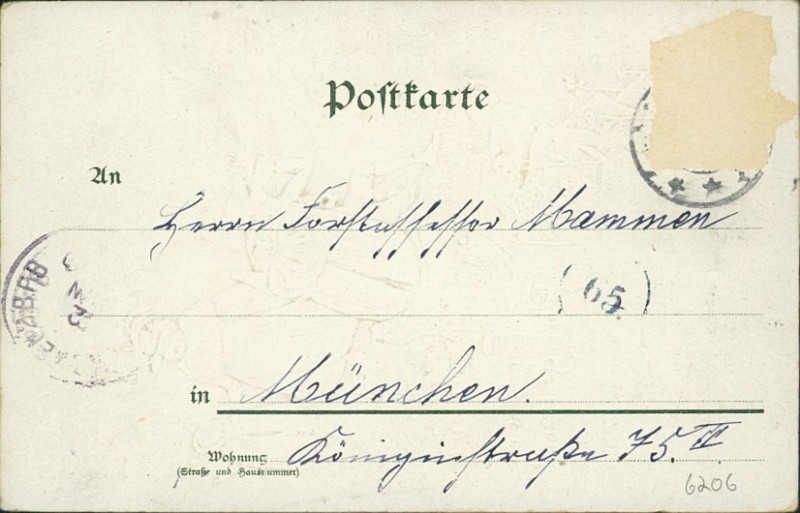 Postkarte
An
Herrn Forstassessor Mammen
(65)
in München.
Wohnung Königinstraße 75. II
(Straße und Hausnummer)
6206